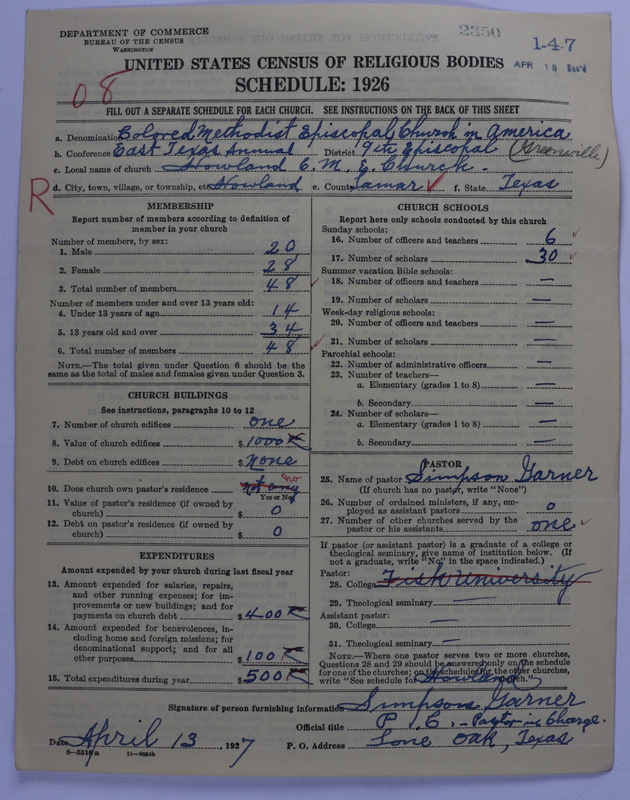 DEPARTMENT OF COMMERCE
BUREAU OF THE CENSUS
WASHINGTON
2350
1-4-7
APR 18
UNITED STATES CENSUS OF RELIGIOUS BODIES
SCHEDULE: 1926
08
FILL OUT A SEPARATE SCHEDULE FOR EACH CHURCH. SEE INSTRUCTIONS ON THE BACK OF THIS SHEET
a. Denomination Colored Methodist Episcopal Church in America
b. Conference East Texas Annual District 9th Episcopal (Greenville)
c. Local name of church Howland C. M. E. Church.
R
d. City, town, village, or township, etc. Howland e. County Lamar ✓ f. State Texas
MEMBERSHIP
Report number of members according to definition of
member in your church
Number of members, by sex:
1. Male 20
2. Female 28
3. Total number of members 48
Number of members under and over 13 years old:
4. Under 13 years of age 14
5. 13 years old and over 34
6. Total number of members 48
NOTE.—The total given under Question 6 should be
same as the total of males and females given under Question 3.
CHURCH BUILDINGS
See instructions, paragraphs 10 to 12
7. Number of church edifices one
8. Value of church edifices $ 1000
9. Debt on church edifices $ None
10. Does church own pastor's residence not any no
Yes or No
11. Value of pastor's residence (if owned by
church) $ 0
12. Debt on pastor's residence (if owned by
church) $ 0
EXPENDITURES
Amount expended by your church during last fiscal year
13. Amount expended for salaries, repairs,
and other running expenses; for im-
provements or new buildings; and for
payments on church debt $ 400
14. Amount expended for benevolences, in-
cluding home and foreign missions; for
denominational support; and for all
other purposes $ 100
15. Total expenditures during year $ 500
CHURCH SCHOOLS
Report here only schools conducted by this church
Sunday schools:
16. Number of officers and teachers 6 ✓
17. Number of scholars 30 ✓
Summer vacation Bible schools:
18. Number of officers and teachers —
19. Number of scholars —
Week-day religious schools:
20. Number of officers and teachers —
21. Number of scholars —
Parochial schools:
22. Number of administrative officers —
23. Number of teachers—
a. Elementary (grades 1 to 8) —
b. Secondary —
24. Number of scholars—
a. Elementary (grades 1 to 8) —
b. Secondary —
PASTOR
25. Name of pastor Simpson Garner
(If church has no pastor, write "None")
26. Number of ordained ministers, if any, em-
ployed as assistant pastors 0
27. Number of other churches served by the
pastor or his assistants one ✓
If pastor (or assistant pastor) is a graduate of a college or
theological seminary, give name of institution below. (If
not a graduate, write "No" in the space indicated.)
Pastor:
28. College Fisk University
29. Theological seminary —
Assistant pastor:
30. College —
31. Theological seminary —
NOTE.—Where one pastor serves two or more churches,
Questions 28 and 29 should be answered only on the schedule
for one of the churches; on the schedules for the other churches,
write "See schedule for Howland church."
Signature of person furnishing information Simpson Garner
Official title P. C. - Pastor in Charge.
Date April 13, 1927 P. O. Address Lone Oak, Texas
8—5518 a 11—9264